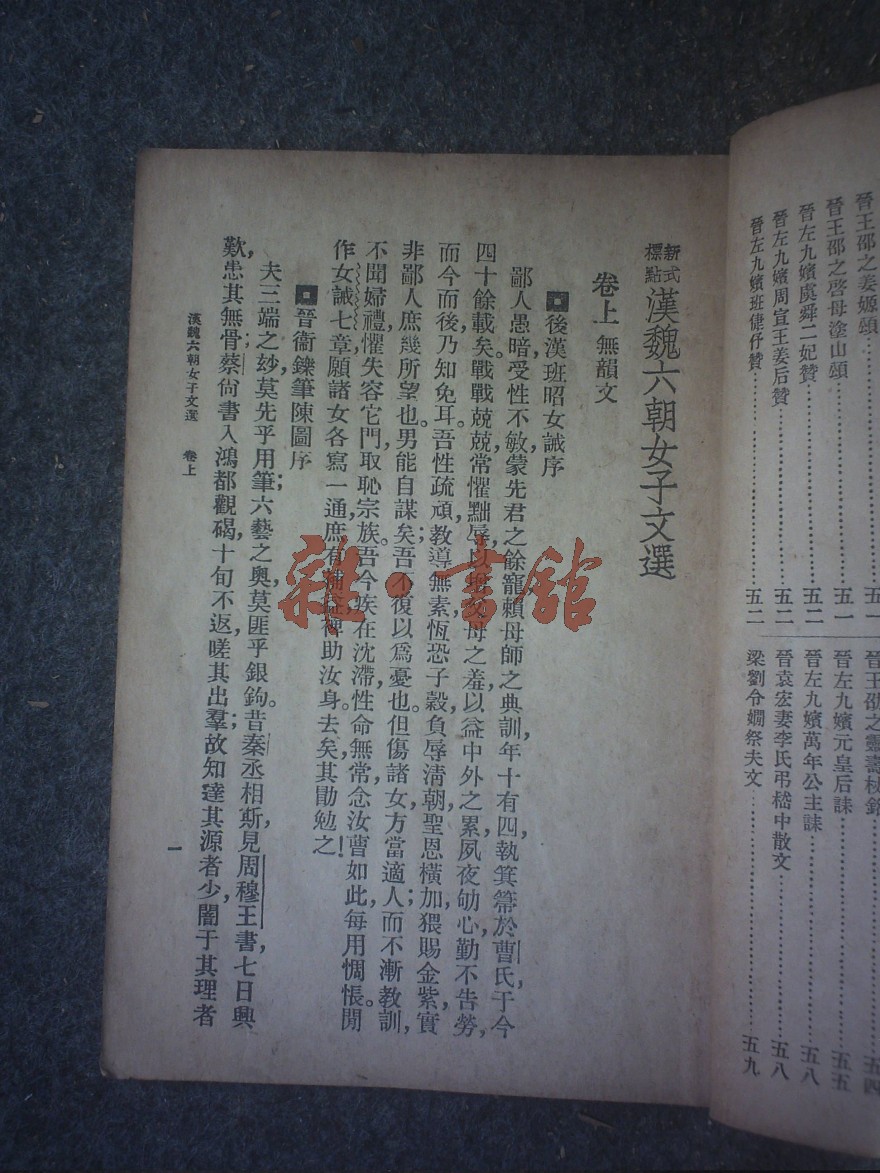 晉王邵之姜嫄頌……五一
晉王邵之啓母塗山頌……五一
晉左九嬪虞舜二妃贊……五二
晉左九嬪周宣王姜后贊……五二
晉左九嬪班倢伃贊……五二
晉王邵之靈壽杖銘……五四
晉左九嬪元皇后誄……五五
晉左九嬪萬年公主誄……五八
晉袁宏妻李氏弔嵇中散文……五八
梁劉令嫺祭夫文……五九
新式標點漢魏六朝女子文選
卷上 無韻文
後漢班昭女誡序
鄙人愚暗,受性不敏,蒙先君之餘寵,賴母師之典訓,年十有四,執箕箒於曹氏,于今
四十餘載矣。戰戰兢兢,常懼黜辱,以增父母之羞,以益中外之累,夙夜劬心,勤不告勞,
而今而後,乃知免耳。吾性疏頑,教導無素,恆恐子穀負辱清朝,聖恩橫加,猥賜金紫,實
非鄙人庶幾所望也。男能自謀矣;吾不復以爲憂也。但傷諸女方當適人;而不漸教訓,
不聞婦禮,懼失容它門,取恥宗族。吾今疾在沈滯,性命無常,念汝曹如此,每用惆悵。閒
作女誡七章,願諸女各寫一通,庶有補益,裨助汝身。去矣,其勖勉之!
晉衞鑠筆陳圖序
夫三端之妙,莫先乎用筆;六藝之奧,莫匪乎銀鉤。昔秦丞相斯見周穆王書,七日興
歎,患其無骨;蔡尙書入鴻都觀碣,十旬不返,嗟其出羣;故知達其源者少,闇于其理者
漢魏六朝女子文選 卷上
一
雜·書舘